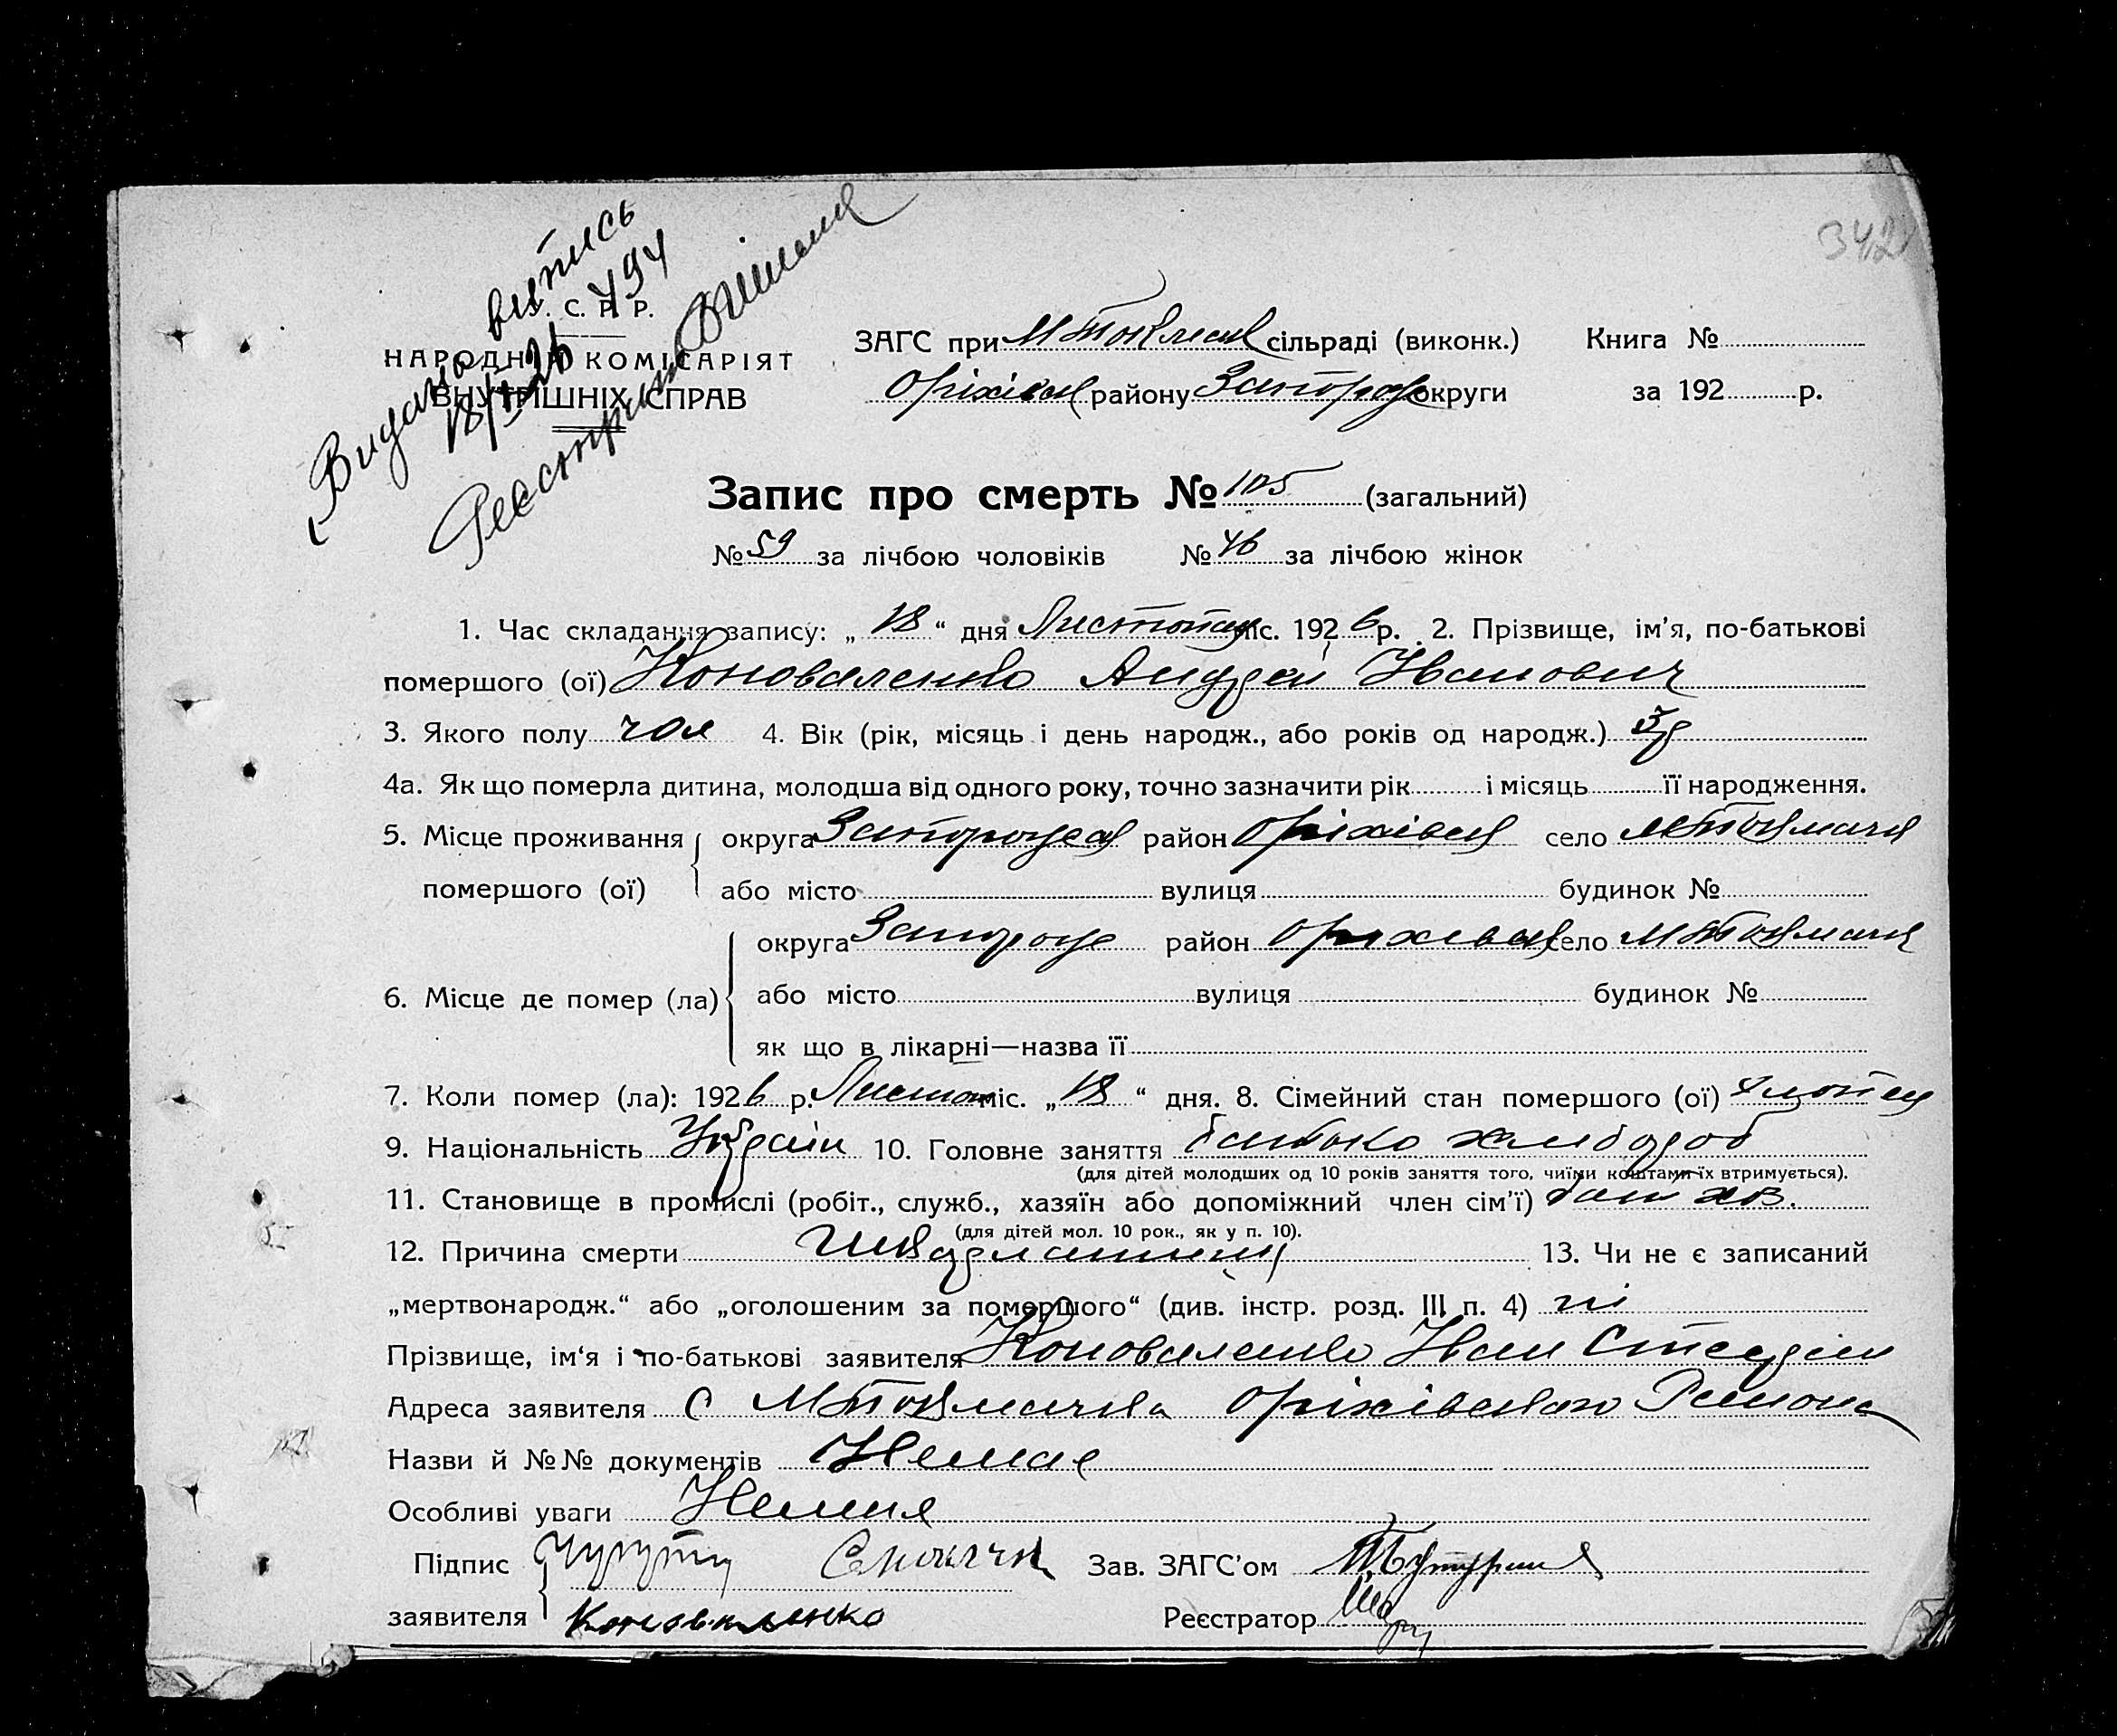 342
Видано випись
18/XI 26 № 494
У. С. Р. Р.
НАРОДНІЙ КОМІСАРІЯТ
ВНУТРІШНІХ СПРАВ
ЗАГС при М Токмац сільраді (виконк.) Книга №
Оріхівск району Запорож округи за 192 р.
Запис про смерть № 105 (загальний)
№ 59 за лічбою чоловіків № 46 за лічбою жінок
1. Час складання запису: „ 18 “ дня Листопад міс. 1926 р. 2. Прізвище, ім’я, по-батькові
помершого (ої) Коноваленко Андрей Іванович
3. Якого полу чол 4. Вік (рік, місяць і день народж., або років од народж.)
4а. Як що померла дитина, молодша від одного року, точно зазначити рік і місяць її народження.
5. Місце проживання округа район село
помершого (ої) або місто вулиця будинок №
округа Запорож район село
6. Місце де помер (ла) або місто вулиця будинок №
як що в лікарні—назва її
7. Коли помер (ла): 1926 р. Листоп міс. „ 18 “ дня. 8. Сімейний стан помершого (ої) хлопец
9. Національність Україн 10. Головне заняття батько хлибороб
(для дітей молодших од 10 років заняття того, чиїми коштами їх втримується).
11. Становище в промислі (робіт., служб., хазяїн або допоміжний член сім’ї) бат хоз.
(для дітей мол. 10 рок., як у п. 10).
12. Причина смерти 13. Чи не є записаний
„мертвонародж.“ або „оголошеним за помершого“ (див. інстр. розд. III п. 4) ні
Прізвище, ім‘я і по-батькові заявителя Коноваленко Іван
Адреса заявителя С М Токмачка Оріхівського Района
Назви й №№ документів Немає
Особливі уваги Немия
Підпис Зав. ЗАГС’ом
заявителя Коноваленко Реєстратор